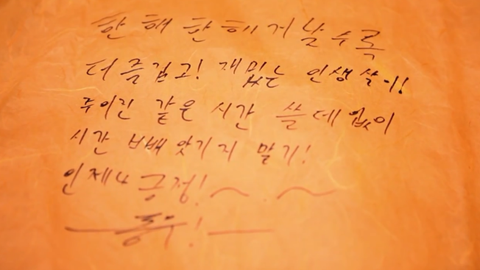 한 해 한 해 거날수록
더 즐겁고! 재밌는 인생살이!
주어진 같은 시간 쓸데없이
시간 빼앗기지 말기!
언제나 긍정!~ ~